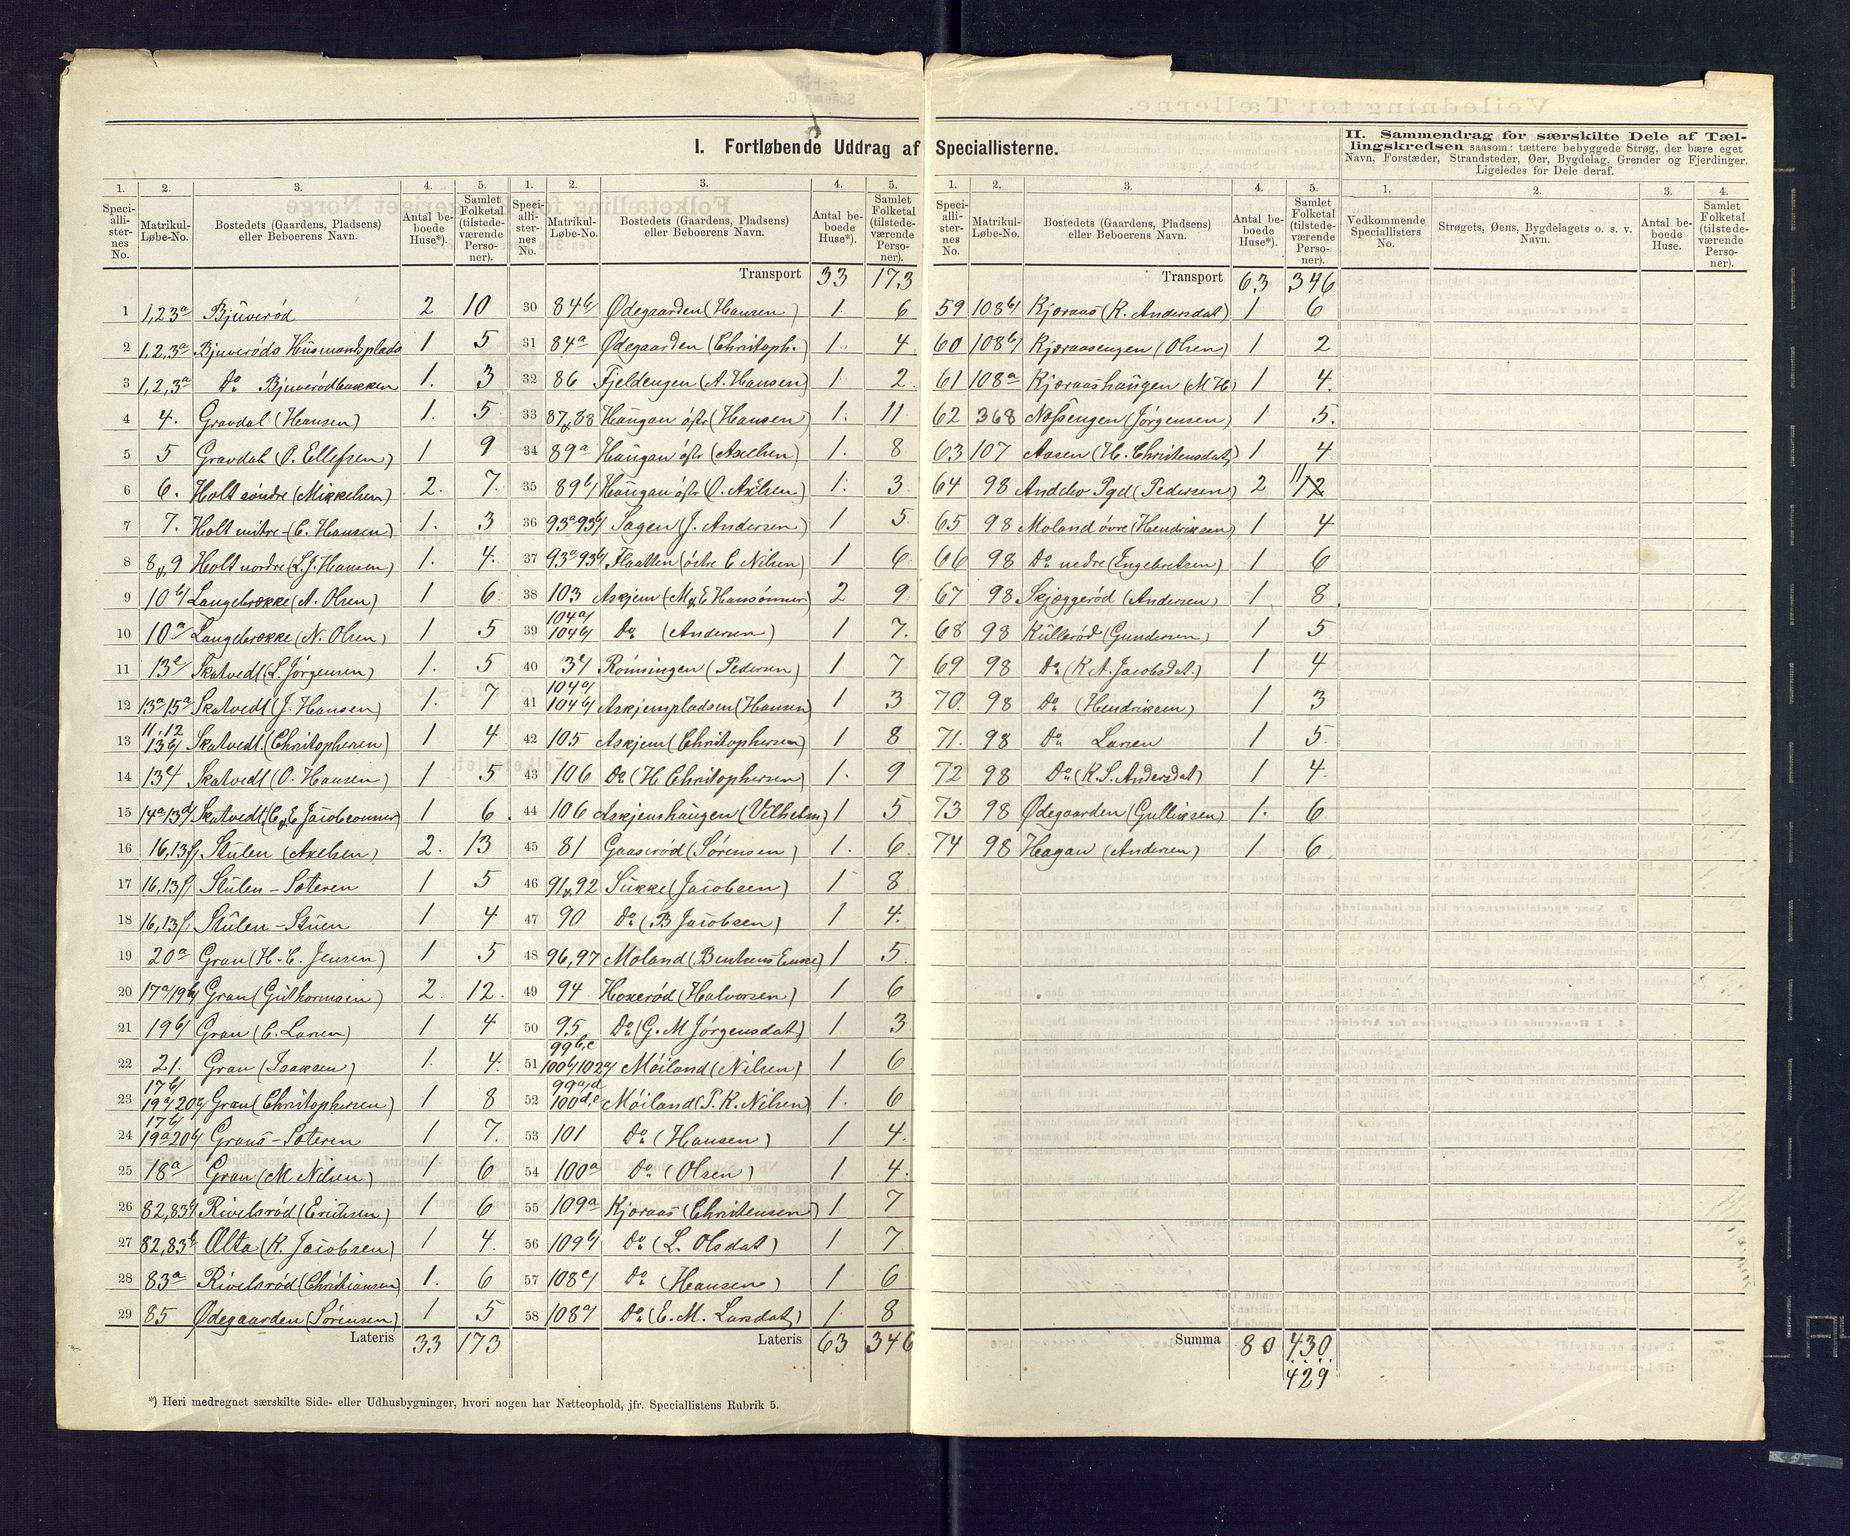 I. Fortløbende Uddrag af Speciallisterne.
II. Sammendrag for særskilte Dele af Tællingskredsen saasom: tættere bebyggede Strøg, der bære eget Navn, Forstæder, Strandsteder, Øer, Bygdelag, Grender og Fjerdinger. Ligeledes for Dele deraf.
1. 2. 3. 4. 5. 1. 2. 3. 4. 5. 1. 2. 3. 4. 5. 1. 2. 3. 4.
Speciallisternes No. Matrikul-Løbe-No. Bostedets (Gaardens, Pladsens) eller Beboerens Navn. Antal beboede Huse*). Samlet Folketal (tilstedeværende Personer).
Speciallisternes No. Matrikul-Løbe-No. Bostedets (Gaardens, Pladsens) eller Beboerens Navn. Antal beboede Huse*). Samlet Folketal (tilstedeværende Personer).
Speciallisternes No. Matrikul-Løbe-No. Bostedets (Gaardens, Pladsens) eller Beboerens Navn. Antal beboede Huse*). Samlet Folketal (tilstedeværende Personer).
Vedkommende Speciallisters No. Strøgets, Øens, Bygdelagets o. s. v. Navn. Antal beboede Huse. Samlet Folketal (tilstedeværende Personer).
1 1,2,3a Bjuverød 2 10
2 1,2,3a Bjuverøds Husmandsplads 1 5
3 1,2,3a Do Bjuverødbakken 1. 3
4 4. Gravdal (Hansen) 1. 5
5 5 Gravdal (O. Ellefsen) 1 9
6 6. Holt søndre (Mikkelsen) 2. 7.
7 7. Holt mitre (C. Hansen) 1. 3
8 8 & 9 Holt nordre (L. J. Hansen) 1. 4.
9 10b Langebrekke (A. Olsen) 1 6
10 10a Langebrekke (N. Olsen) 1 5
11 13e Skatvedt (L. Jørgensen) 1. 5
12 13a 15a Skatvedt (J. Hansen) 1. 7
13 11,12 13b Skatvedt. (Christophersen) 1 4
14 134 Skatvedt (O. Hansen) 1 5
15 14a 13d Skatvedt (C & E Jacobsønner) 1 6
16 16,13f Stulen (Axelsen) 2. 13
17 16,13f Stulen-Sæteren 1 5
18 16,13f Stulen-Stuen 1 4
19 20a Gran (H. C. Jensen) 1 5
20 17a 19b Gran (Guthormsen) 2. 12.
21 19b Gran (C. Larsen) 1 4
22 21. Gran (Isaksen) 1. 4.
23 17b 19a 20b Gran (Christophersen) 1 8
24 17b 19a 20b Grans-Sæteren 1 7.
25 18a Gran (M. Nilsen) 1 6
26 82,83b Rivelsrød (Erichsen) 1 6
27 82,83b Ølta (K. Jacobsen) 1 4.
28 83a Rivelsrød (Christiansen) 1. 6
29 85 Ødegaarden (Sørensen) 1 5
Lateris 33 173
Transport 33 173
30 84b Ødegaarden (Hansen) 1. 6
31 84a Ødegaarden (Christoph. 1. 4
32 86 Fjeldengen (A. Hansen) 1. 2.
33 87 & 88 Haugan østr (Hansen) 1. 11
34 89a Haugan østr (Axelsen) 1. 8
35 89b Haugan østr (O. Axelsen) 1. 3
36 93a 93b Sagen (J. Andersen) 1 5
37 93a 93b Flaatten (østre C Nilsen) 1 6
38 103 Askjem (M & E Hansønner) 2 9
39 104a 104b Do (Andersen) 1 7.
40 34 Rønningen (Pedersen) 1 7
41 104a 104b Askjempladsen (Hansen) 1 3
42 105 Askjem (Christophersen) 1 8
43 106 Do (H. Christophersen) 1. 9
44 106 Askjemshaugen (Vilhelm) 1 5
45 81 Gaaserød (Sørensen) 1. 6.
46 91 & 92 Sukke (Jacobsen) 1 8
47 90 Do (B Jacobsen) 1 4.
48 96,97 Moland (Bentsens Enke) 1 5.
49 94 Hoxerød (Halvorsen) 1 6
50 95 Do (G. M Jørgensdat) 1 3
51 99b,c 100b 102a Møiland (Nilsen) 1 6
52 99a,d 100d,c Møiland (P. K. Nilsen) 1. 6
53 101 Do (Hansen) 1 4.
54 100a Do (Olsen) 1 4.
55 109a Kjøraas (Christensen) 1 7
56 109b Do (L. Olsdat) 1 7.
57 108c Do (Hansen) 1 6
58 108a Do (E. M. Larsdat) 1. 8
Lateris 63 346
Transport 63 346
59 108b Kjøraas (K. Andersdat) 1 6
60 108b Kjøraasengen (Olsen) 1 2
61 108a Kjøraashaugen (M H) 1 4.
62 368 Nossengen (Jørgensen) 1 5.
63 107 Aasen (H. Christensdat) 1 4
64 98 Andebo Pgd (Pedersen) 2 11 12
65 98 Moland øvre (Hendriksen) 1 4
66 98 Do nedre (Ingebretsen) 1 6
67 98 Skjeggerød (Andersen) 1 8.
68 98 Kullerød (Gundersen) 1 5
69 98 Do (K A. Jacobsdat.) 1 4
70. 98 Do (Hendriksen) 1 3
71. 98 Do Larsen 1 5.
72 98 Do (K. S. Andersdat) 1 4.
73 98 Ødegaarden (Gulliksen) 1. 6
74 98 Heagan (Andersen) 1 6.
Summa 80 430
429
*) Heri medregnet særskilte Side- eller Udhusbygninger, hvori nogen har Natteophold, jfr. Speciallistens Rubrik 5.